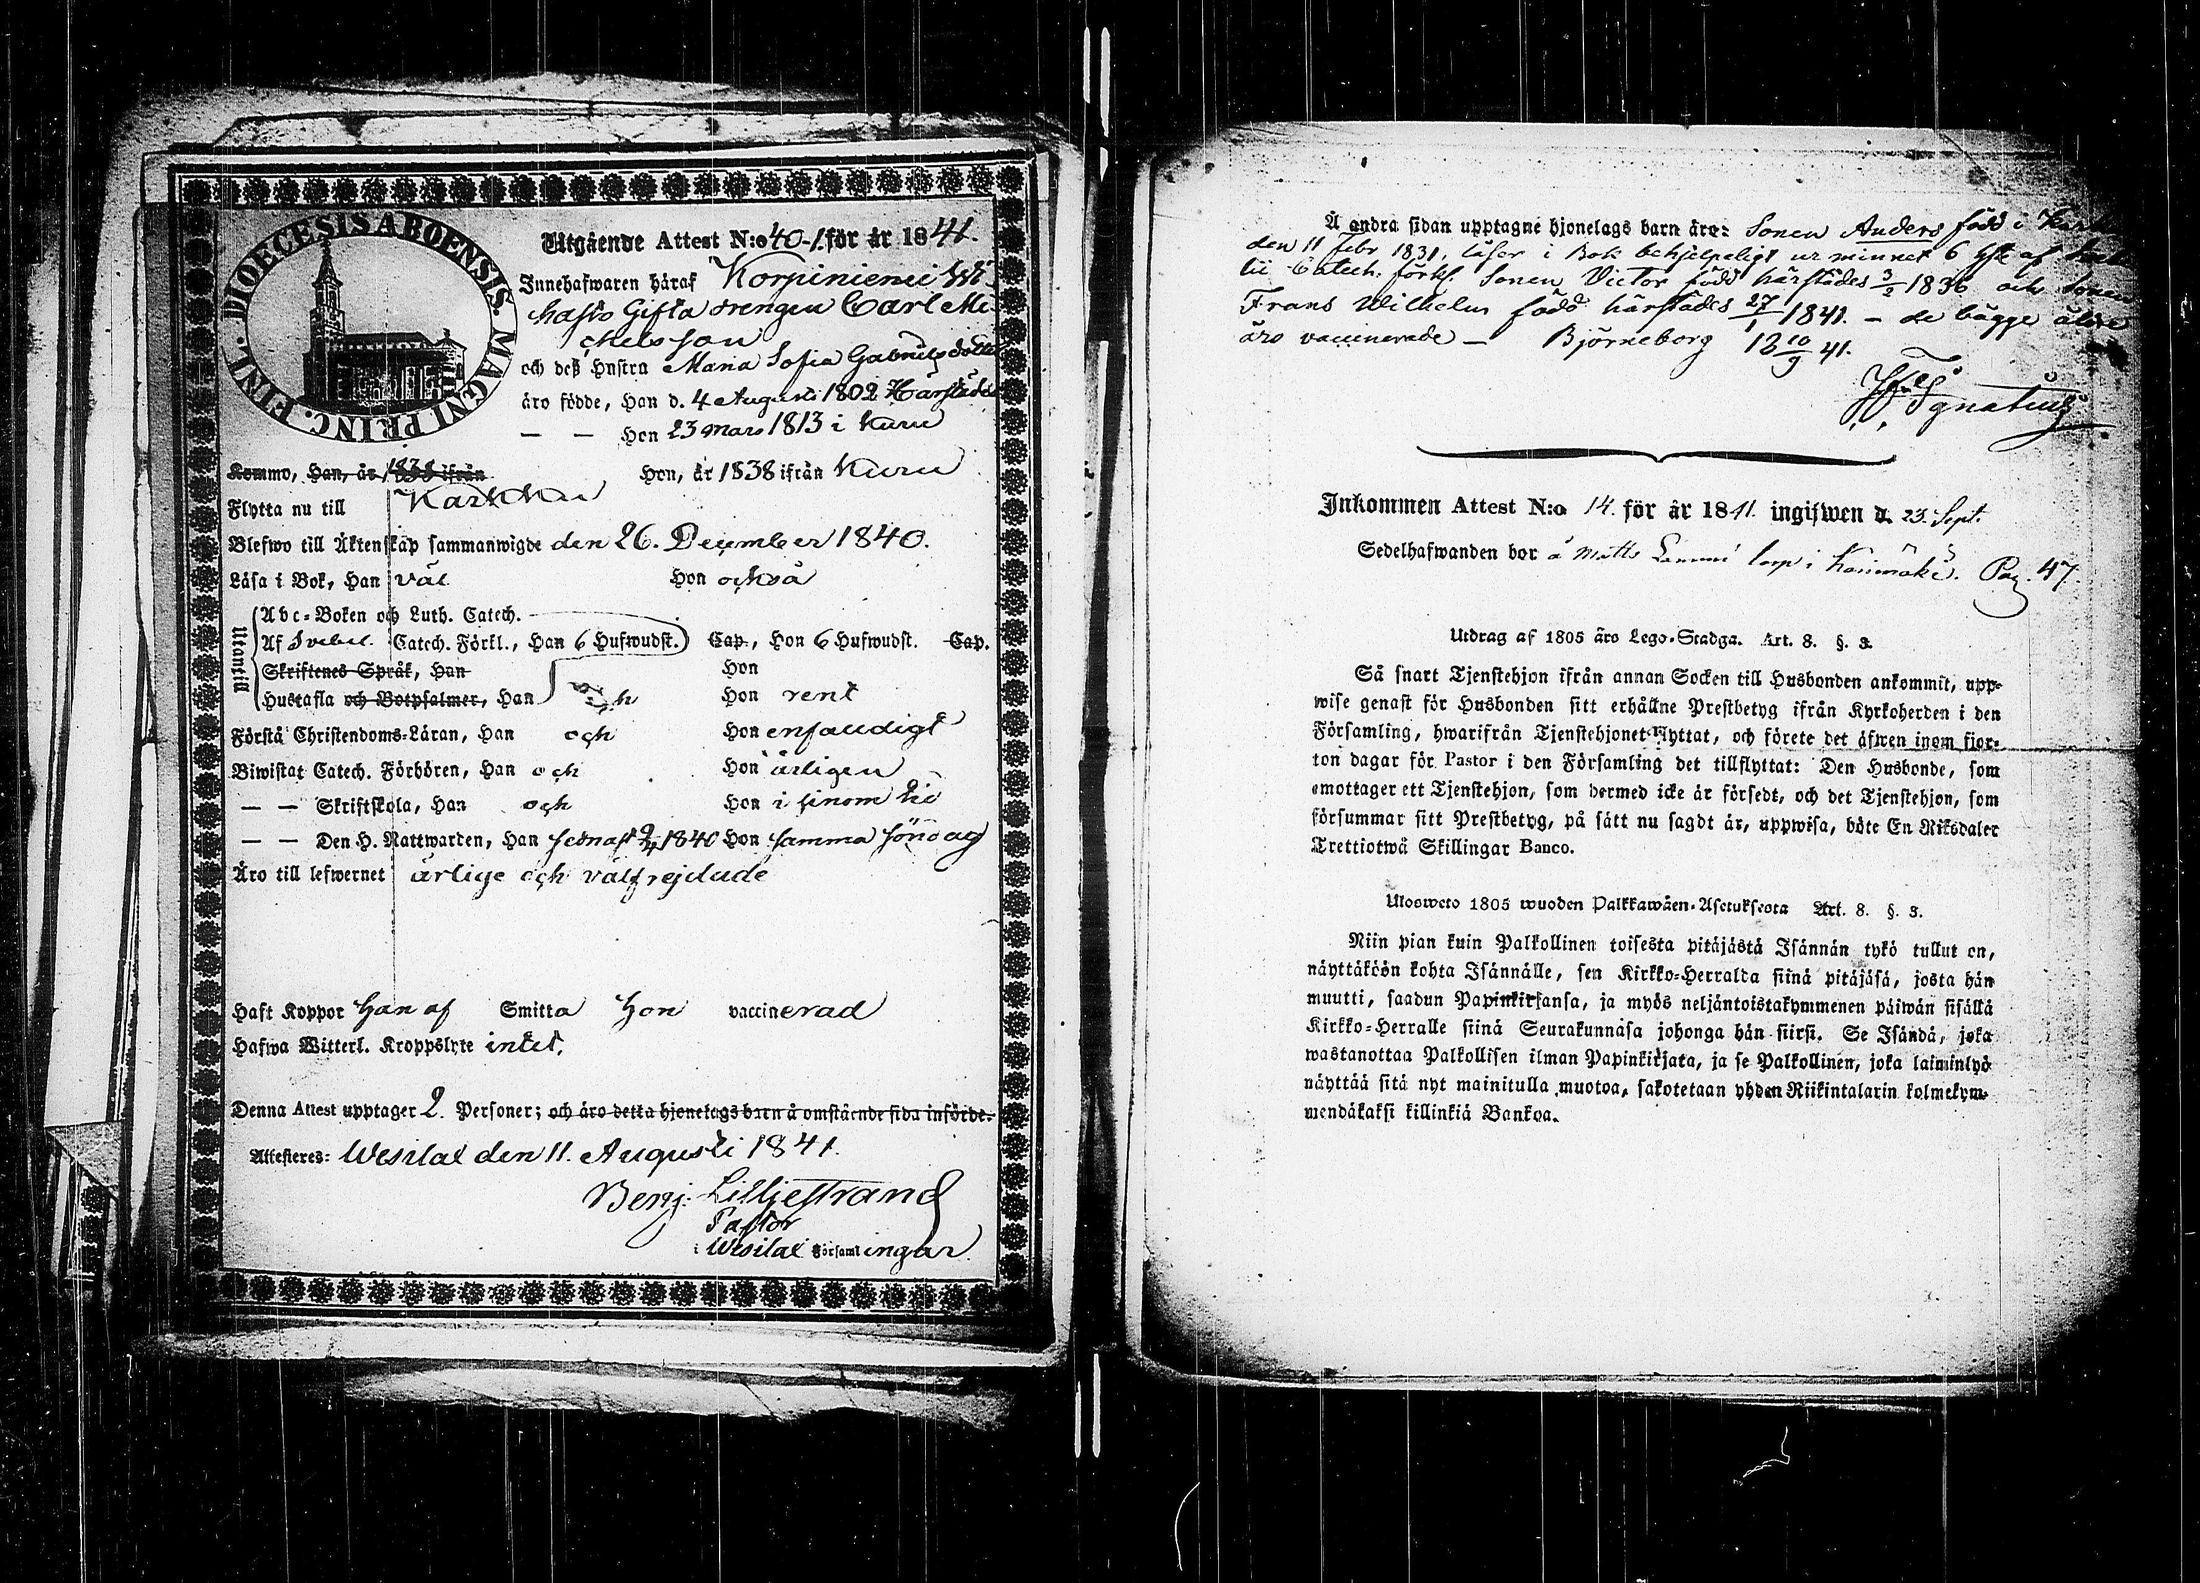 DIOECESIS ABOENSIS. MAGNI PRINC. FINL.
Utgående Attest N:o 40-1. för år 1841.
Innehafwaren häraf Korpiniemi Wi-
hasts Gifta drengen Carl Mi-
chelsson
och deß Hustru Maria Sofia Gabrielsdotter
äro födde, Han d. 4 Augusti 1802 Härstädes
— — Hon 23 Mars 1813 i Kuru
Kommo, Han, år 1838 ifrån Hon, år 1838 ifrån Kuru
Flytta nu till Karkku
Blefwo till Äktenskap sammanwigde den 26. December 1840.
Läsa i Bok, Han väl Hon också
Utantill
Abc-Boken och Luth. Catech.
Af Svebel. Catech. Förkl., Han 6 Hufwudst. Cap., Hon 6 Hufwudst. Cap.
Skriftenes Språk, Han Hon
Hustafla och Botpsalmer, Han och Hon rent
Förstå Christendoms-Läran, Han och Hon enfaldigt
Biwistat Catech. Förhören, Han och Hon årligen
— — Skriftskola, Han och Hon i sinom tid
— — Den H. Nattwarden, Han sednast 1840 Hon samma söndag
Äro till lefwernet ärlige och välfrejdade
Haft Koppor Han af Smitta Hon vaccinerad
Hafwa Witterl. Kroppslyte intet.
Denna Attest upptager 2. Personer; och äro detta hjonelags barn å omstående sida införde.
Attesteres: Wesilax den 11. Augusti 1841.
Benj. Lilljestrand
Pastor
i Wesilax Församlingar
Å andra sidan upptagne hjonelags barn äro: Sonen Anders född i
den 11 Febr 1831, läser i Bok behjelpeligt ur minnet 6 hst af
lii Catech. förkl. Sonen Victor född härstädes 3/2 1836 och Sonen
Frans Wilhelm född härstädes 27/1 1841. — de bägge äldre
äro vaccinerade — Björneborg 18 10/9 41.
Ignatius
Inkommen Attest N:o 14. för år 1841. ingifwen d. 23. Sept.
Sedelhafwanden bor å Matts Lammi torp i Pag. 47.
Utdrag af 1805 års Lego-Stadga. Art. 8. §. 3.
Så snart Tjenstehjon ifrån annan Socken till Husbonden ankommit, upp-
wise genast för Husbonden sitt erhållne Prestbetyg ifrån Kyrkoherden i den
Församling, hwarifrån Tjenstehjonet flyttat, och förete det äfwen inom fjor-
ton dagar för Pastor i den Församling det tillflyttat: Den Husbonde, som
emottager ett Tjenstehjon, som dermed icke är försedt, och det Tjenstehjon, som
försummar sitt Prestbetyg, på sätt nu sagdt är, uppwisa, böte En Riksdaler
Trettiotwå Skillingar Banco.
Ulosweto 1805 wuoden Palkkawäen-Asetuksesta Art. 8. §. 3.
Niin pian kuin Palkollinen toisesta pitäjästä Isännän tykö tullut on,
näyttäköön kohta Isännälle, sen Kirkko-Herralta siinä pitäjäsä, josta hän
muutti, saadun Papinkirjansa, ja myös neljäntoistakymmenen päiwän sisällä
Kirkko-Herralle siinä Seurakunnasa johonga hän siirsi. Se Isändä, joka
wastanottaa Palkollisen ilman Papinkirjata, ja se Palkollinen, joka laiminlyö
näyttää sitä nyt mainitulla muotoa, sakotetaan yhden Riikintalarin kolmekym-
mendäkaksi killinkiä Bankoa.